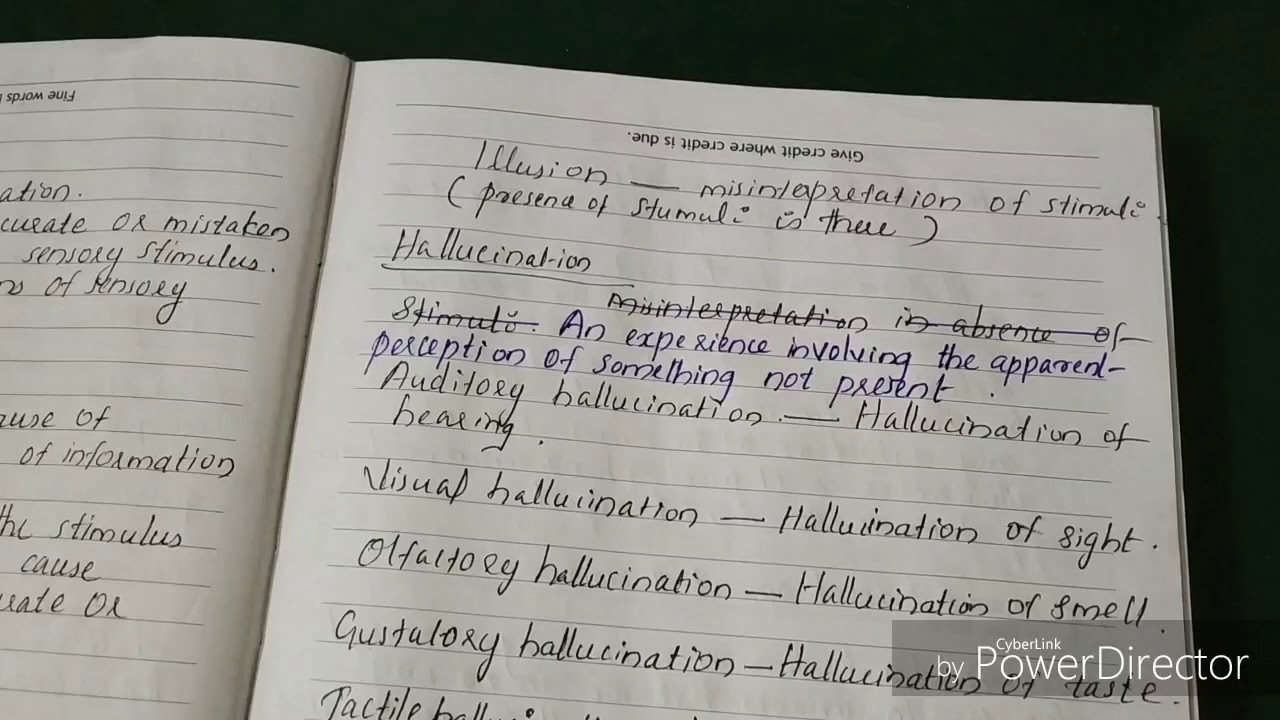 Fine words
ation.
curate Or mistaken
sensory stimulus.
ns of sensory
ause of
of information
the stimulus
cause
urate Or
Give credit where credit is due.
Illusion — misinterpretation of stimuli
(presence of stumuli is there)
Hallucination
Misinterpretation in absence of
Stimuli. An experience involving the apparent
perception of something not present.
Auditory hallucination. — Hallucination of
hearing.
Visual hallucination — Hallucination of sight.
Olfactory hallucination — Hallucination of smell.
Gustatory hallucination — Hallucination of taste.
Tactile
CyberLink
by PowerDirector